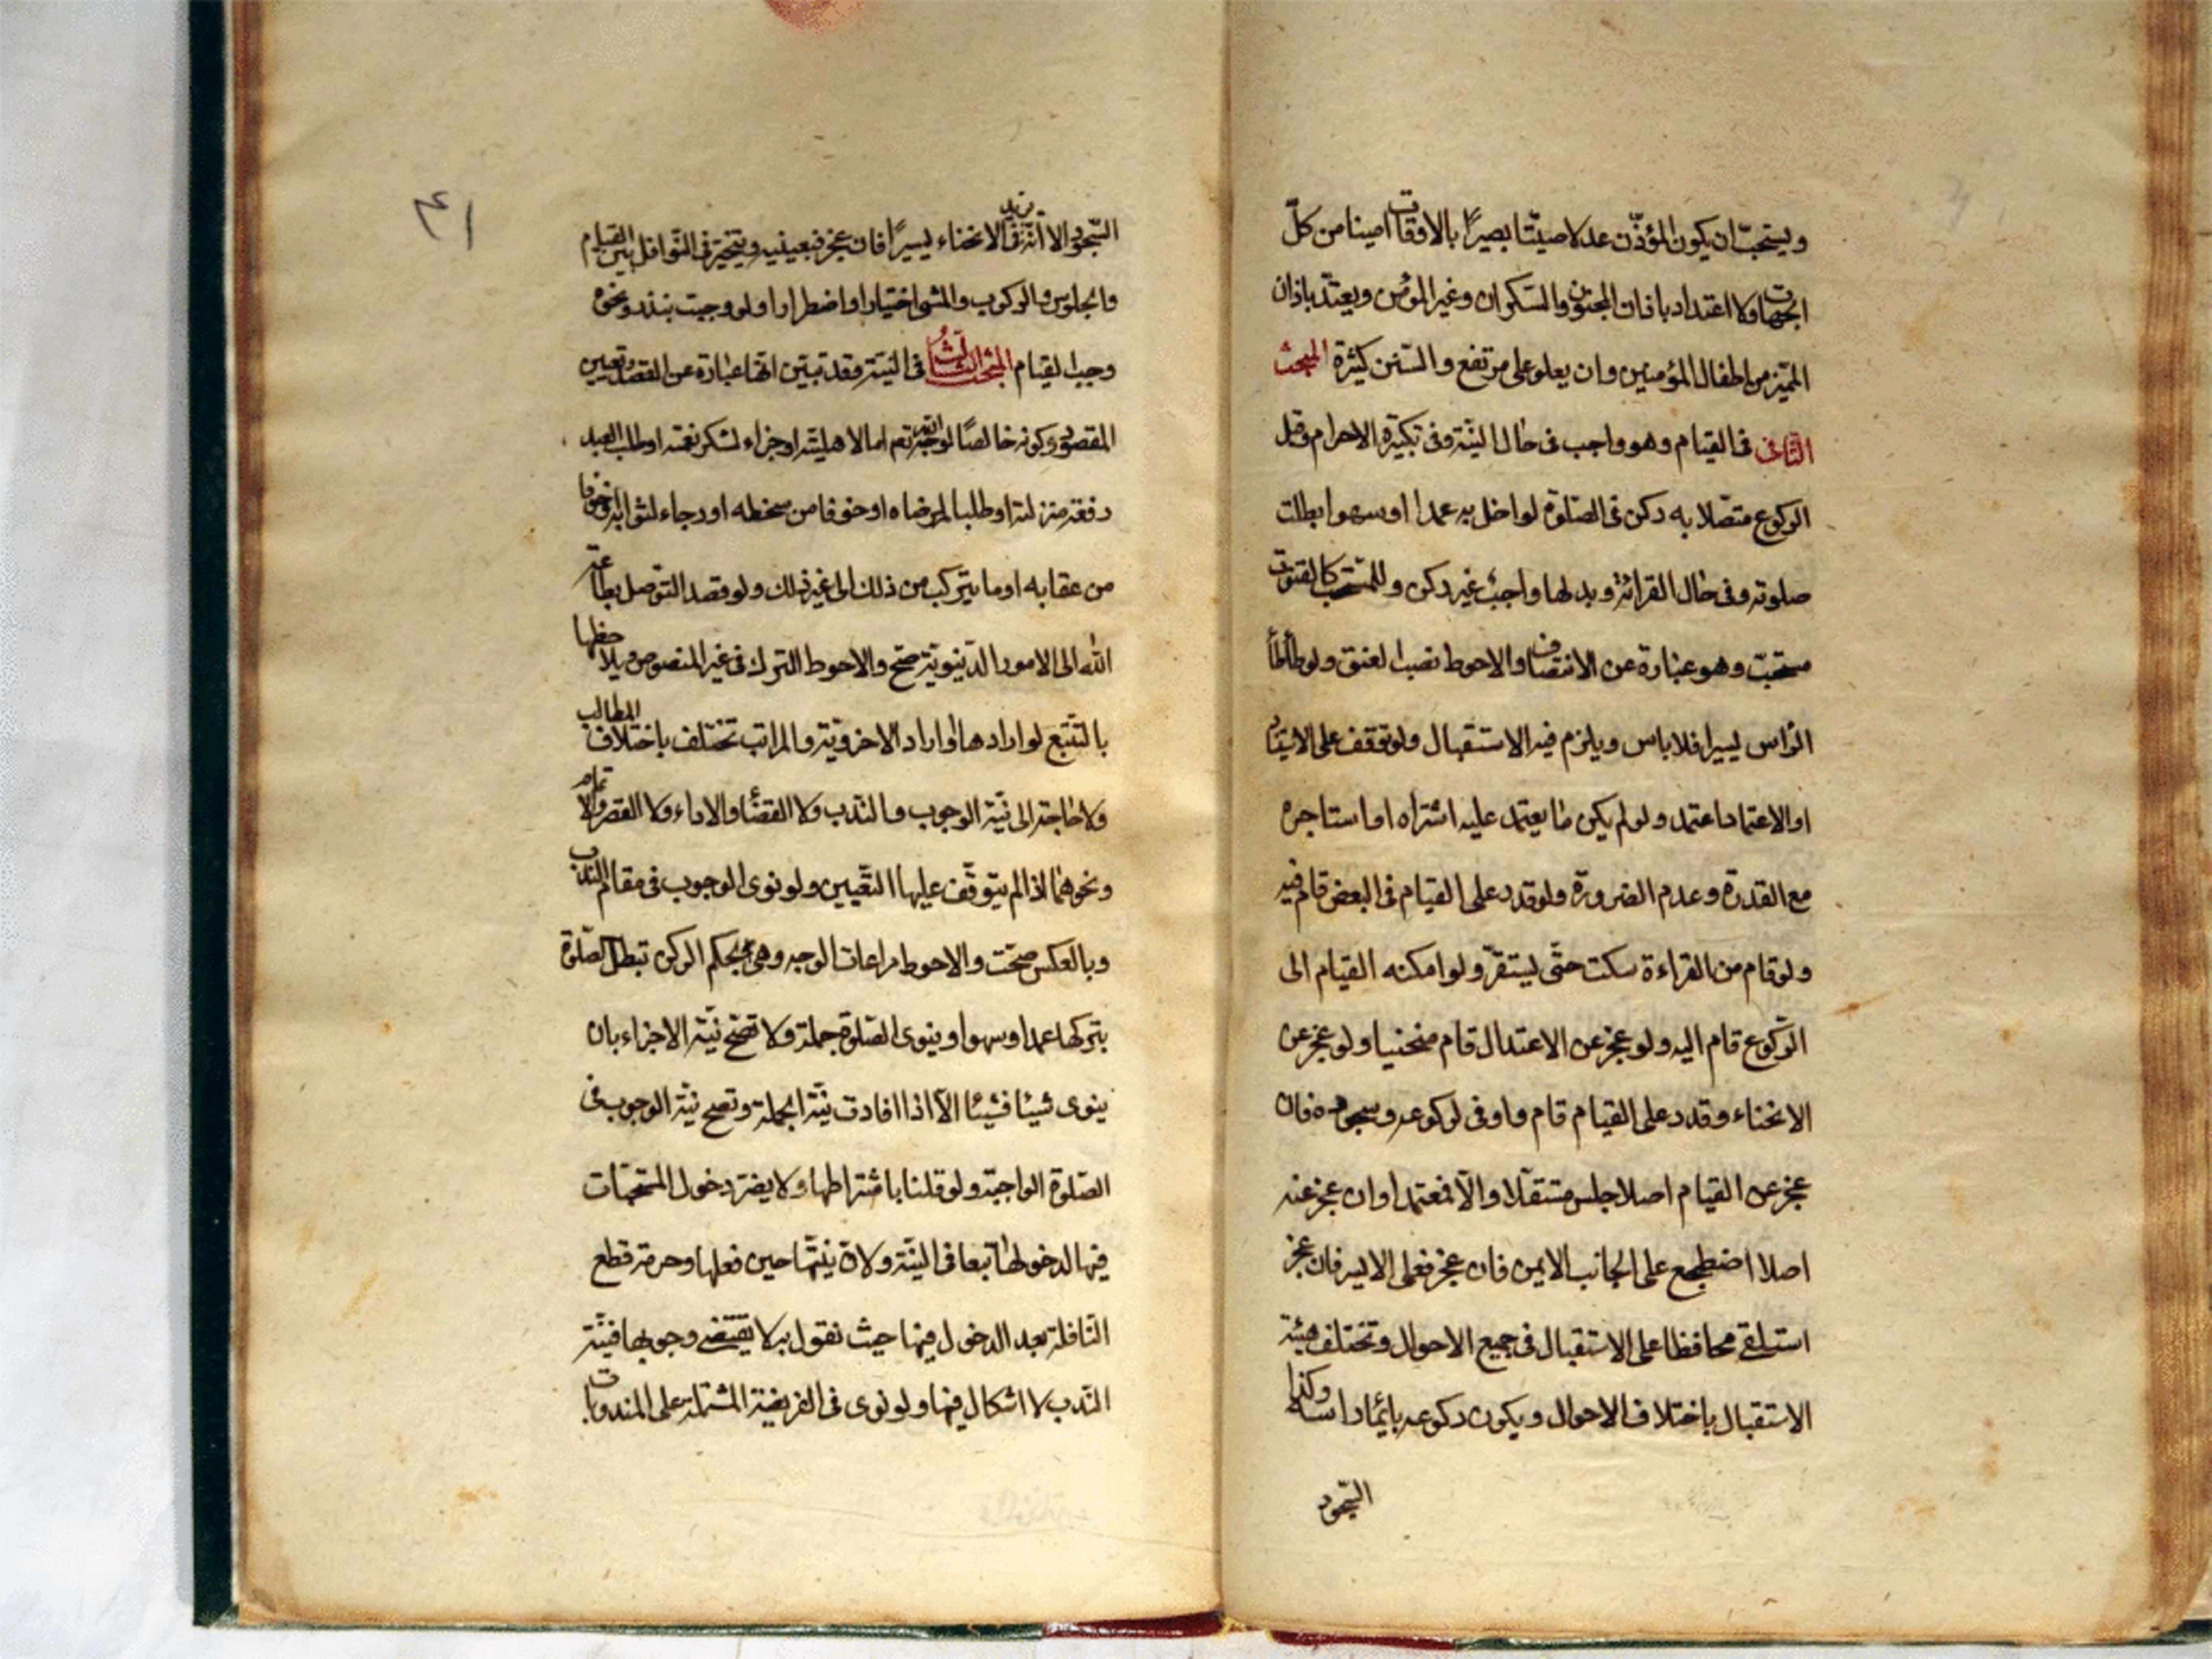 ويستحبّ ان يكون المؤذّن عدلا صيّتا بصيرًا بالاوقات امينا من كلّ
الجهات ولا اعتداد باذان المجنون والسّكران وغير المؤمن ويعتدّ باذان
المميّز من اطفال المؤمنين وان يعلو على مرتفع والسّنن كثيرة المبحث
الثّانى فى القيام وهو واجب فى حال النيّة وفى تكبيرة الاحرام وقبل
الركوع متّصلا به ركن فى الصّلوة لو اخل به عمدا او سهوا بطلت
صلوته وفى حال القرائة وبدلها واجب غير ركن وللمستحب كالقنوت
مستحبّ وهو عبارة عن الانتصاف والاحوط نصب العنق ولو طأطأ
الرّاس يسيرا فلا باس ويلزم فيه الاستقبال ولو توقف على الاستناد
او الاعتماد اعتمد ولو لم يكن ما يعتمد عليه اشتراه او استاجره
مع القدرة وعدم الضرورة ولو قدر على القيام فى البعض قام فيه
ولو قام من القراءة سكت حتّى يستقرّ ولو امكنه القيام الى
الرّكوع قام اليه ولو عجز عن الاعتدال قام منحنيا ولو عجز عن
الانحناء وقدر على القيام قام واومى لركوعه وسجوده فان
عجز عن القيام اصلا جلس مستقلّا والّا فمعتمدا وان عجز عنه
اصلا اضطجع على الجانب الايمن فان عجز فعلى الايسر فان عجز
استلقى محافظا على الاستقبال فى جميع الاحوال وتختلف هيئة
الاستقبال باختلاف الاحوال ويكون ركوعه بايماء راسه وكذا
السّجود
٤١
السّجود الا انّه يزيد فى الانحناء يسيرًا فان عجز فبعينيه ويتخيّر فى النّوافل بين القيام
والجلوس والركوب والمشى اختيارا واضطرارا ولو وجبت بنذر ونحوه
وجب القيام المبحث الثّالث فى النيّة وقد تبيّن انّها عبارة عن القصد وتعيين
المقصود وكونه خالصًا لوجه الله تعم اما لاهليّته او جزاء لشكر نعمته او طلب العبد
رفعة منزلته او طلبا لمرضاه او خوفا من سخطه او رجاء لثوابه او خوفا
من عقابه او ما يتركب من ذلك الى غير ذلك ولو قصد التوصل بطاعة
الله الى الامور الدّينويّة صحّ والاحوط الترك فى غير المنصوص
بالتّتبع لو ارادها او اراد الاخرويّة والمراتب تختلف باختلاف المطالب
ولا حاجة الى نيّة الوجوب والنّدب ولا القضاء والاداء ولا القصر والاتمام
ونحوهما اذا لم يتوقّف عليها التّعيين ولو نوى الوجوب فى مقام النّدب
وبالعكس صحّت والاحوط مراعات الوجه وهى بحكم الركن تبطل الصّلوة
بتركها عمدا وسهوا وينوى الصّلوة جملة ولا تصحّ نيّة الاجزاء بان
ينوى شيئا فشيئا الّا اذا افادت نيّة الجملة وتصح نيّة الوجوب فى
الصّلوة الواجبة ولو قلنا باشتراطها ولا يضرّ دخول المستحبّات
فيها لدخولها تبعا فى النيّة ولانّ نيّتها حين فعلها وحرمة قطع
النّافلة بعد الدخول فيها حيث نقول به لا يقتضى وجوبها فنيّة
النّدب لا اشكال فيها ولو نوى فى الفريضة المشتملة على المندوبات